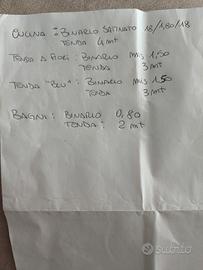 CUCINA : BINARIO SATINATO 18/1,80/18
TENDA 4 mt
TENDA A FIORI : BINARIO mt 1,50
TENDA 3 mt
TENDA "BLU" : BINARIO mt 1,50
TENDA 3 mt
BAGNI : BINARIO 0,80
TENDA : 2 mt
subito